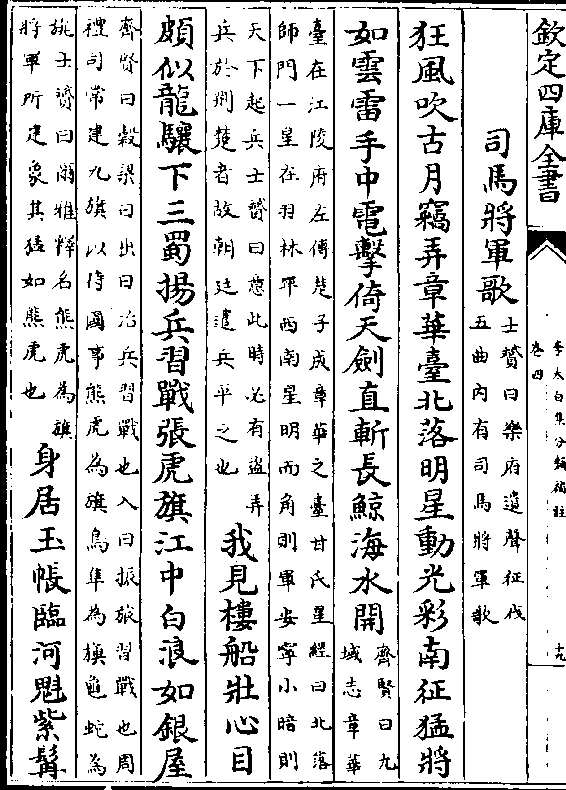 欽定四庫全書
李太白集分類補註
卷四
十九
司馬將軍歌
士贇曰樂府遺聲征伐
五曲内有司馬將軍歌
狂風吹古月竊弄章華臺北落明星動光彩南征猛將
如雲雷手中電擊倚天劍直斬長鯨海水開
齊賢曰九
域志章華
臺在江陵府左傳楚子成章華之臺甘氏星經曰北落
師門一星在羽林平西南星明而角則軍安寧小暗則
天下起兵士贇曰意此時必有盜弄
兵於荆楚者故朝廷遣兵平之也
我見樓船壯心目
頗似龍驤下三蜀揚兵習戰張虎旗江中白浪如銀屋
齊賢曰穀梁曰出曰治兵習戰也入曰振旅習戰也周
禮司常建九旗以待國事熊虎為旗鳥隼為旟龜蛇為
旐士贇曰爾雅釋名熊虎為旗
將軍所建象其猛如熊虎也
身居玉帳臨河魁紫髯